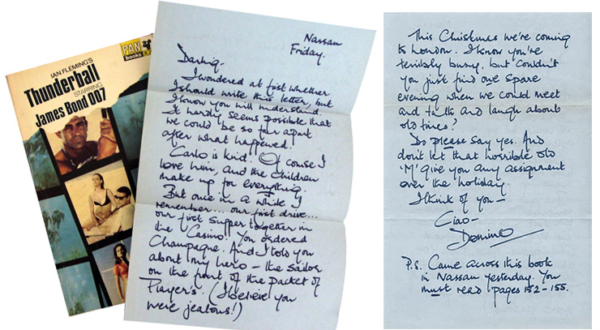 PAN
books
IAN FLEMING'S
Thunderball
STARRING
James Bond 007
Nassau
Friday.
Darling.
I wondered at first whether
I should write this letter, but
I know you will understand.
It hardly seems possible that
we could be so far apart
after what happened!
Carlo is kind. Of course I
love him, and the children
make up for everything.
But once in a while I
remember... our first drive...
our first supper together in
the Casino! You ordered
Champagne. And I told you
about my hero – the sailor
on the front of the packet of
Player's. (I believe you
were jealous!)
This Christmas we're coming
to London. I know you're
terribly busy, but couldn't
you just find one spare
evening when we could meet
and talk and laugh about
old times?
Do please say yes. And
don't let that horrible old
'M' give you any assignment
over the holiday.
I think of you –
Ciao –
Domino
P.S. Came across this book
in Nassau yesterday. You
must read pages 152-155.